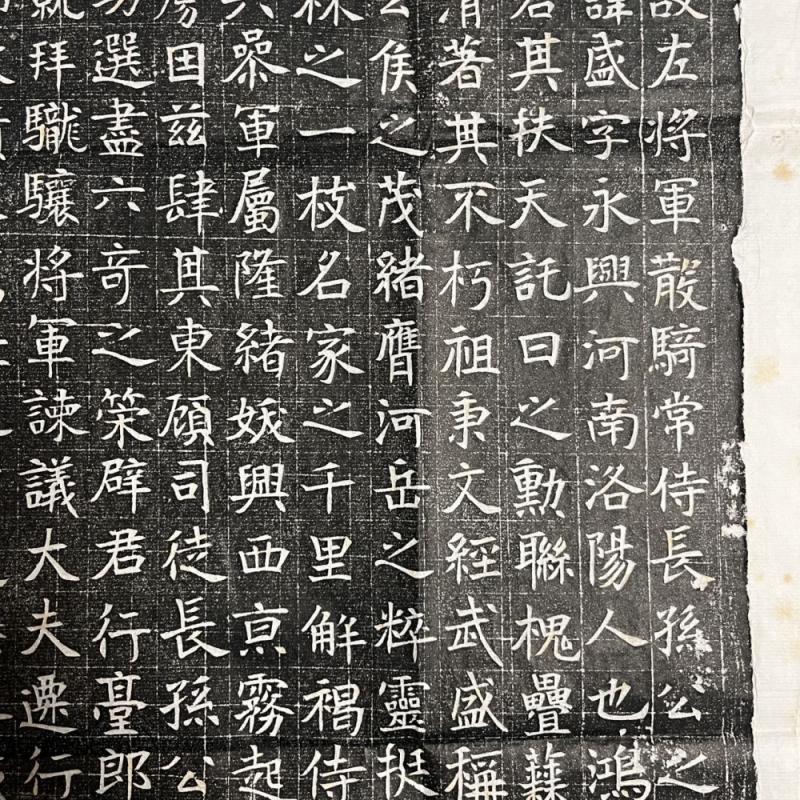 故左将軍散騎常侍長孫公之
諱盛字永興河南洛陽人也鴻
君其秩天託曰之勳聯槐疊蘇
清著其不朽祖秉文經武盛稱
公侯之茂緒膺河岳之粹靈挺
林之一枝名家之千里解褐侍
軍屬隆緒妖興西京霧起
房田茲肆其東顧司徒長孫公
功選盡六奇之榮辟君行臺郎
就拜驤将軍諫議大夫行